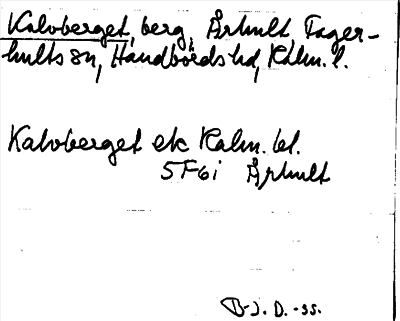 Kalvberget, berg, Århult, Fager-
hults sn, Handbörds hd, Kalm. l.
Kalvberget ek Kalm. bl.
5F6i Århult
B-J. D. -55.